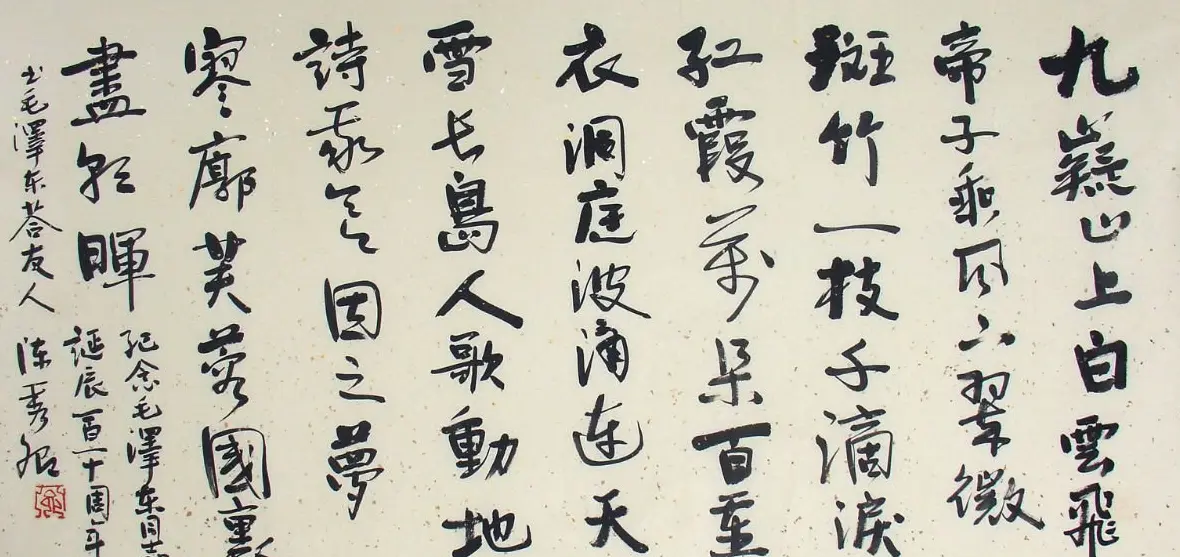 九嶷山上白雲飛
帝子乘风下翠微
斑竹一枝千滴淚
红霞萬朵百重
衣洞庭波涌连天
雪长島人歌動地
詩我欲因之夢
寥廓芙蓉國裏
盡朝暉
纪念毛澤东同志
誕辰百一十周年
书毛澤东答友人
陈秀